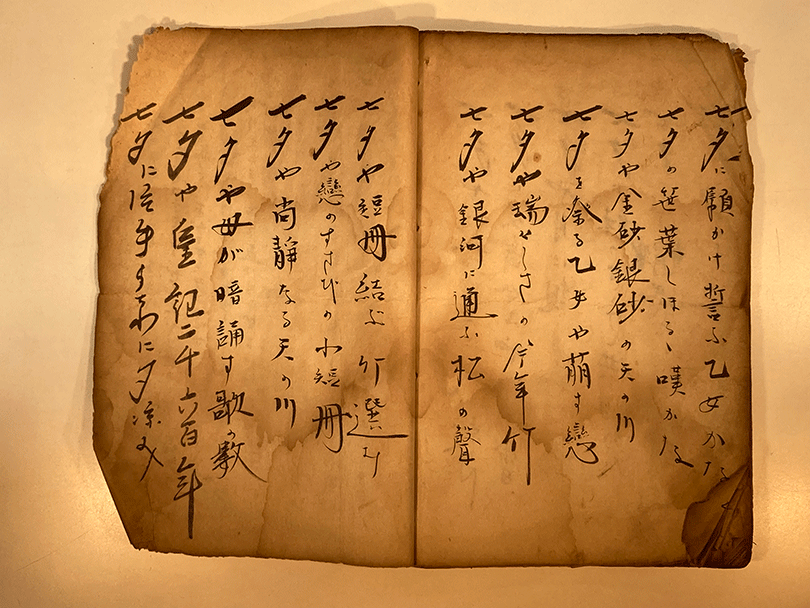 七夕に願かけ誓ふ乙女かな
七夕の笹葉しほるゝ嘆かな
七夕や金砂銀砂の天の川
七夕を祭る乙女や萌す戀
七夕や瑞せしさの今年竹
七夕や銀河に通ふ松の聲
七夕や短冊結ぶ竹選む
七夕や戀のすさびの小短冊
七夕や尚静なる天の川
七夕や母が暗誦す歌の数
七夕や皇記二千六百年
七夕に に夕涼み